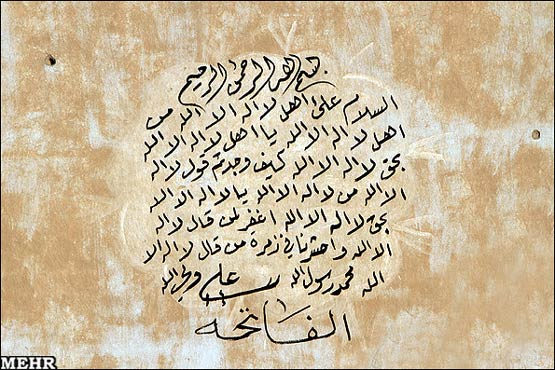 بسم الله الرحمن الرحیم
السلام علی اهل لا اله الا الله من
اهل لا اله الا الله یا اهل لا اله الا الله
بحق لا اله الا الله کیف وجدتم قول لا اله
الا الله من لا اله الا الله یا لا اله الا الله
بحق لا اله الا الله اغفر لمن قال لا اله
الا الله واحشرنا فی زمرة من قال لا اله الا
الله محمد رسول الله علی ولی الله
الفاتحه
MEHR